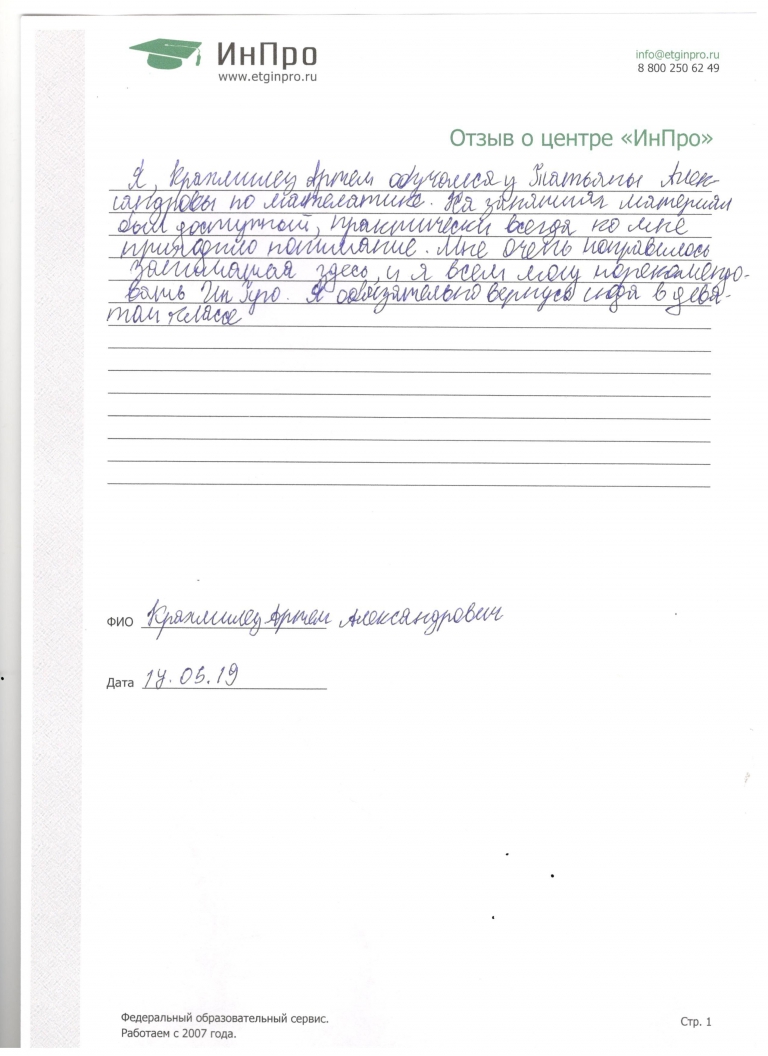 ИнПро
www.etginpro.ru
info@etginpro.ru
8 800 250 62 49
Отзыв о центре «ИнПро»
Я, Крахмилец Артем обучался у Татьяны Алек-
сандровы по математике. На занятиях материал
был доступный, практически всегда ко мне
приходило понимание. Мне очень понравилось
здесь, и я всем могу порекомендо-
вать ИнПро. Я обязательно вернусь сюда в девя-
том классе
ФИО Крахмилец Артем Александрович
Дата 17.05.19
Федеральный образовательный сервис.
Работаем с 2007 года.
Стр. 1